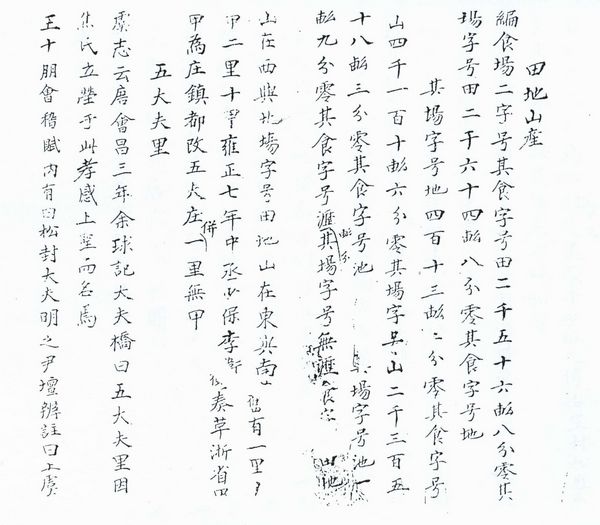 田地山産
編食場二字号其食字号田二千五十六畝八分零其
場字号田二千六十四畝八分零其食字号地
其場字号地四百十三畝二分零其食字号
山四千一百十畝六分零其場字号山二千三百五
十八畝三分零其食字号池 場字号池一
畝九分零其食字号瀝其場字号無瀝食字 山地
山在西與北場字号田地山在東與南 畄有一里
甲二里十甲雍正七年中丞少保李 奏草浙省
甲為庄鎮都改五大庄併一里無甲
五大夫里
虞志云唐會昌三年余球記大夫橋曰五大夫里因
焦氏立塋于此孝感上聖而名焉
王十朋會稽賦内有曰松封大夫明之尹壇辨註曰上虞